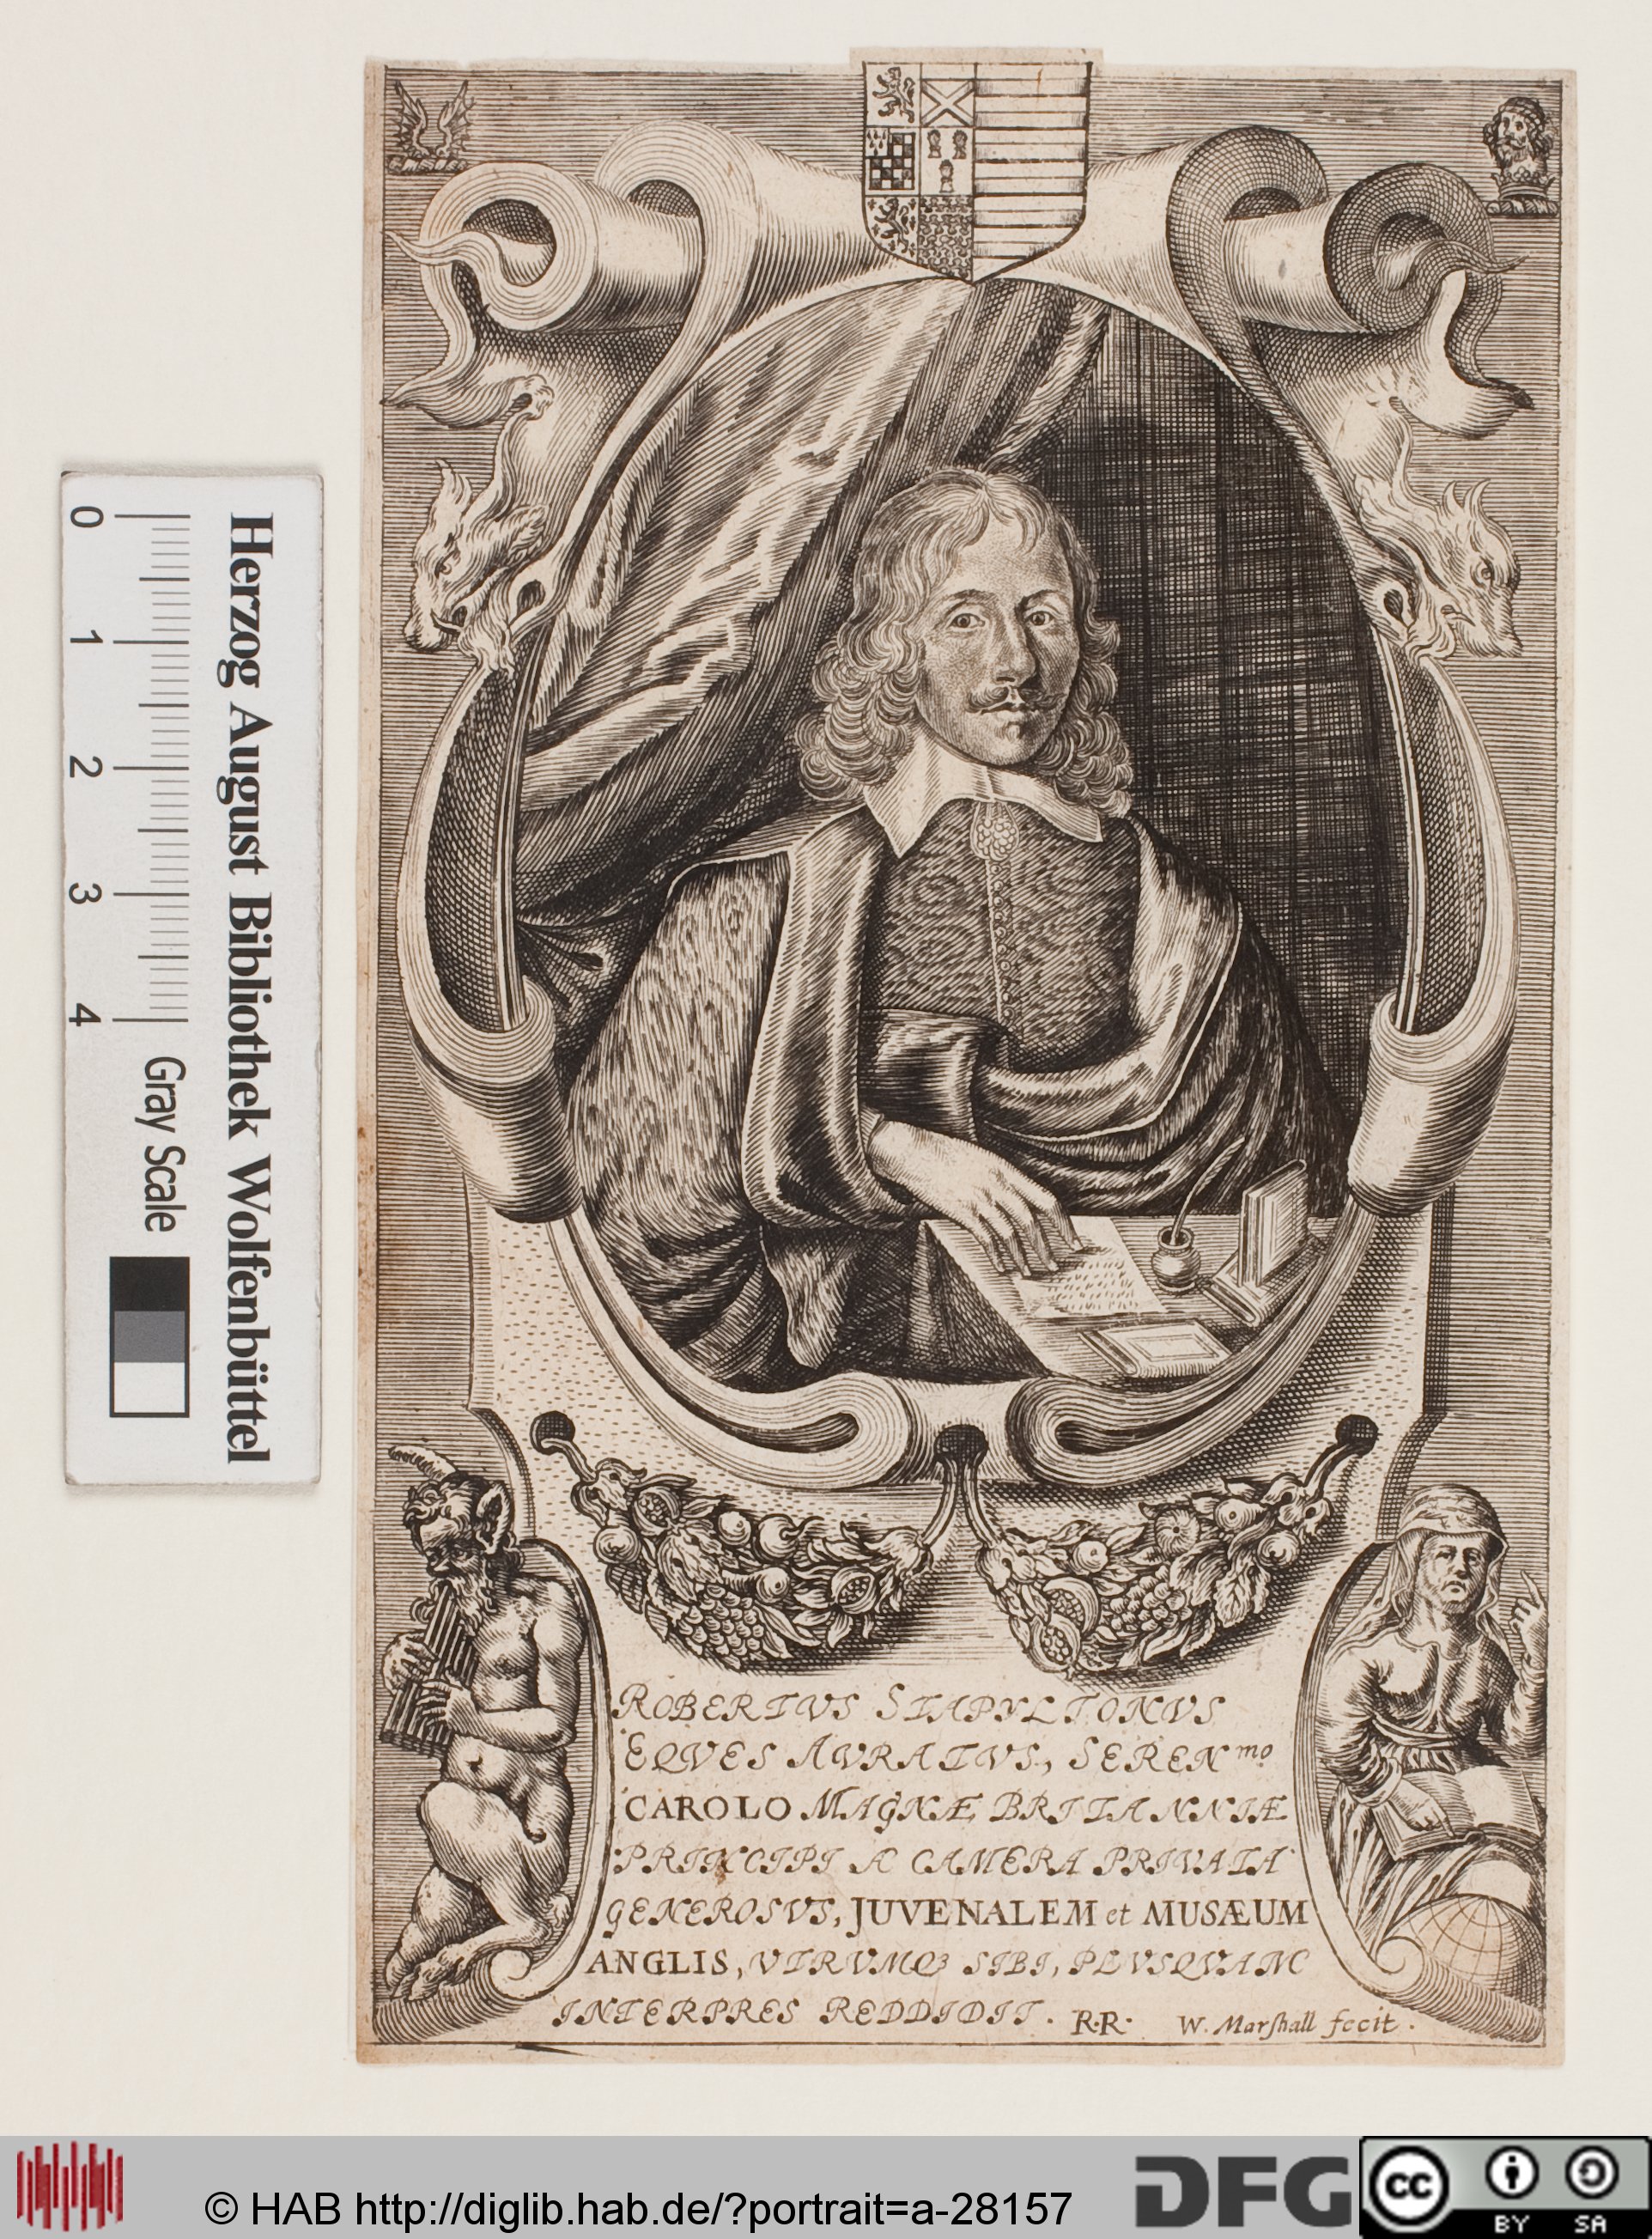 ROBERTVS STAPYLTONVS
EQVES AVRATVS, SEREN mo
CAROLO MAGNÆ BRITANNIÆ
PRINCIPI A CAMERA PRIVATA
GENEROSVS, JUVENALEM et MUSÆUM
ANGLIS, VTRVMQꝫ SIBI, PLVSQVAM
INTERPRES REDDIDIT. R.R. W. Marſhall fecit.
Herzog August Bibliothek Wolfenbüttel
0 1 2 3 4 Gray Scale
© HAB http://diglib.hab.de/?portrait=a-28157
DFG
cc BY SA